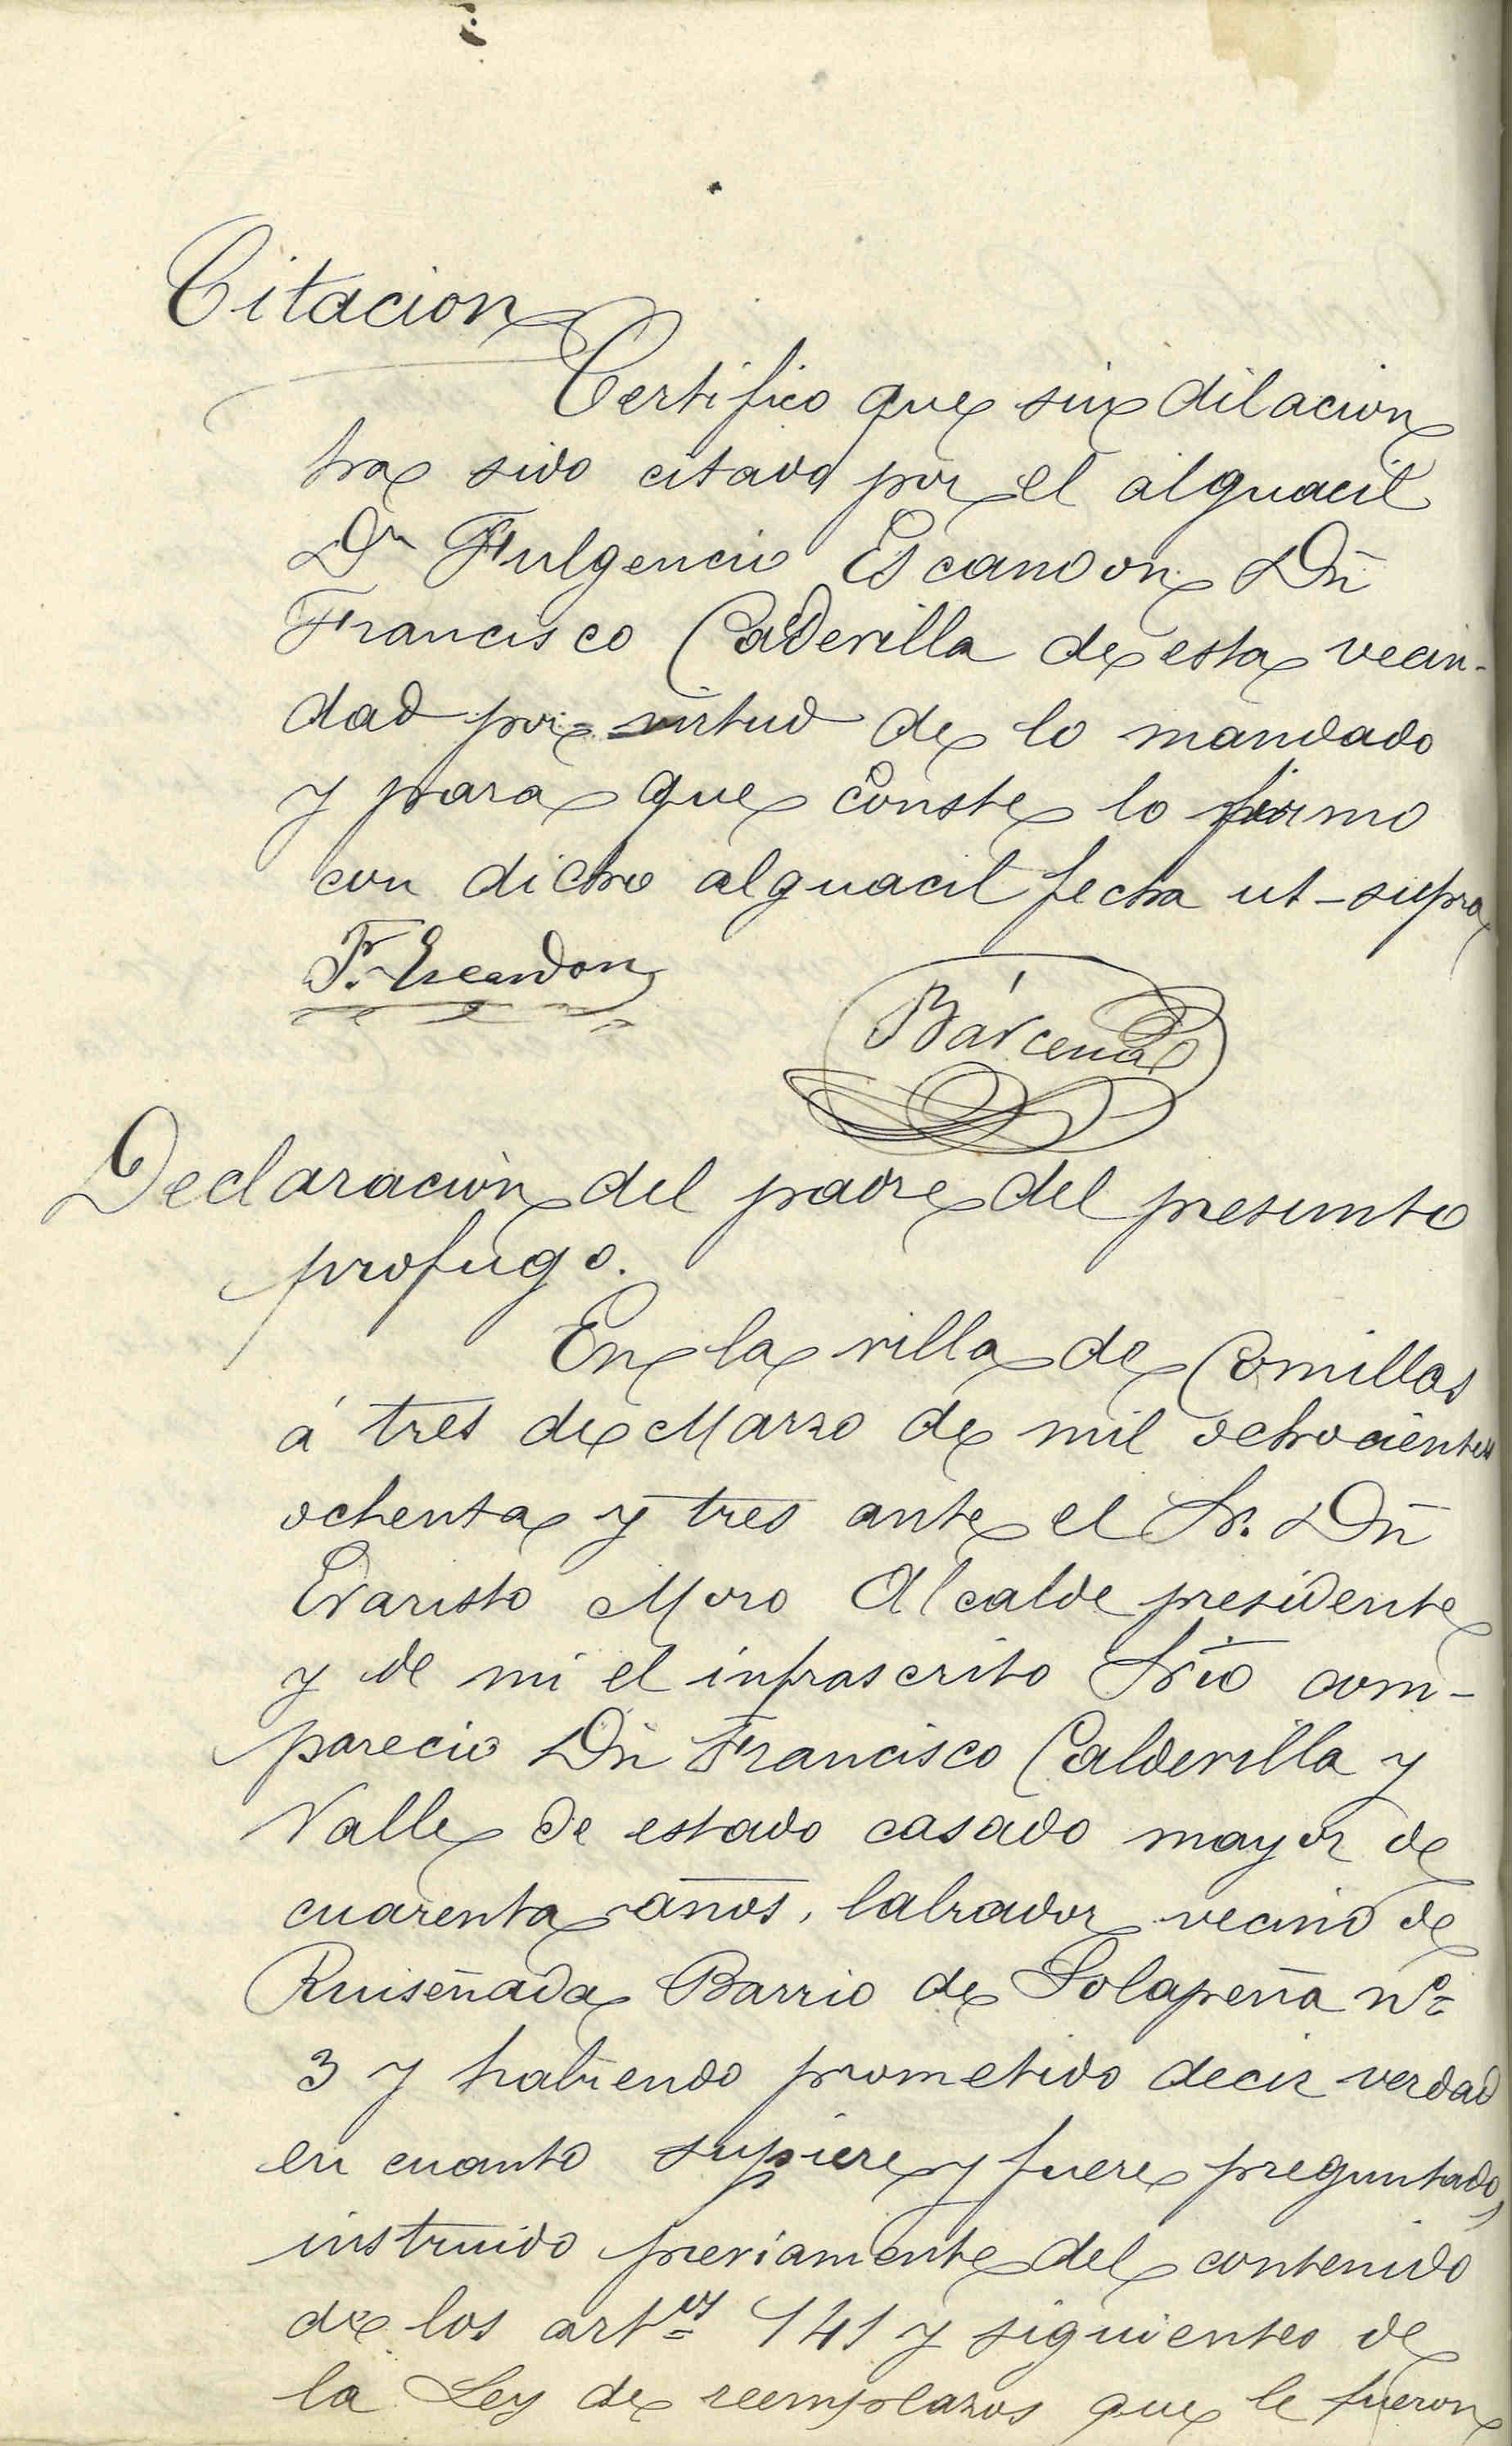 Citacion
Certifico que sin dilacion
ha sido citado por el alguacil
Dn Fulgencio Escandon Dn̄
Francisco Calderilla de esta vecin-
dad por virtud de lo mandado
y para que conste lo firmo
con dicho alguacil fecha ut-supra
F. Escandon
Bárcena
Declaración del padre del presunto
profugo.
En la villa de Comillas
á tres de Marzo de mil ochocientos
ochenta y tres ante el Sr. Dn̄
Evaristo Moro Alcalde presidente
y de mi el infrascrito Srio com-
parecio Dn̄ Francisco Calderilla y
Valle de estado casado mayor de
cuarenta años, labrador vecino de
Ruiseñada Barrio de Solapeña nº
3 y habiendo prometido decir verdad
en cuanto supiere y fuere preguntado,
instruido previamente del contenido
de los artes 141 y siguientes de
la Ley de reemplazos que le fueron